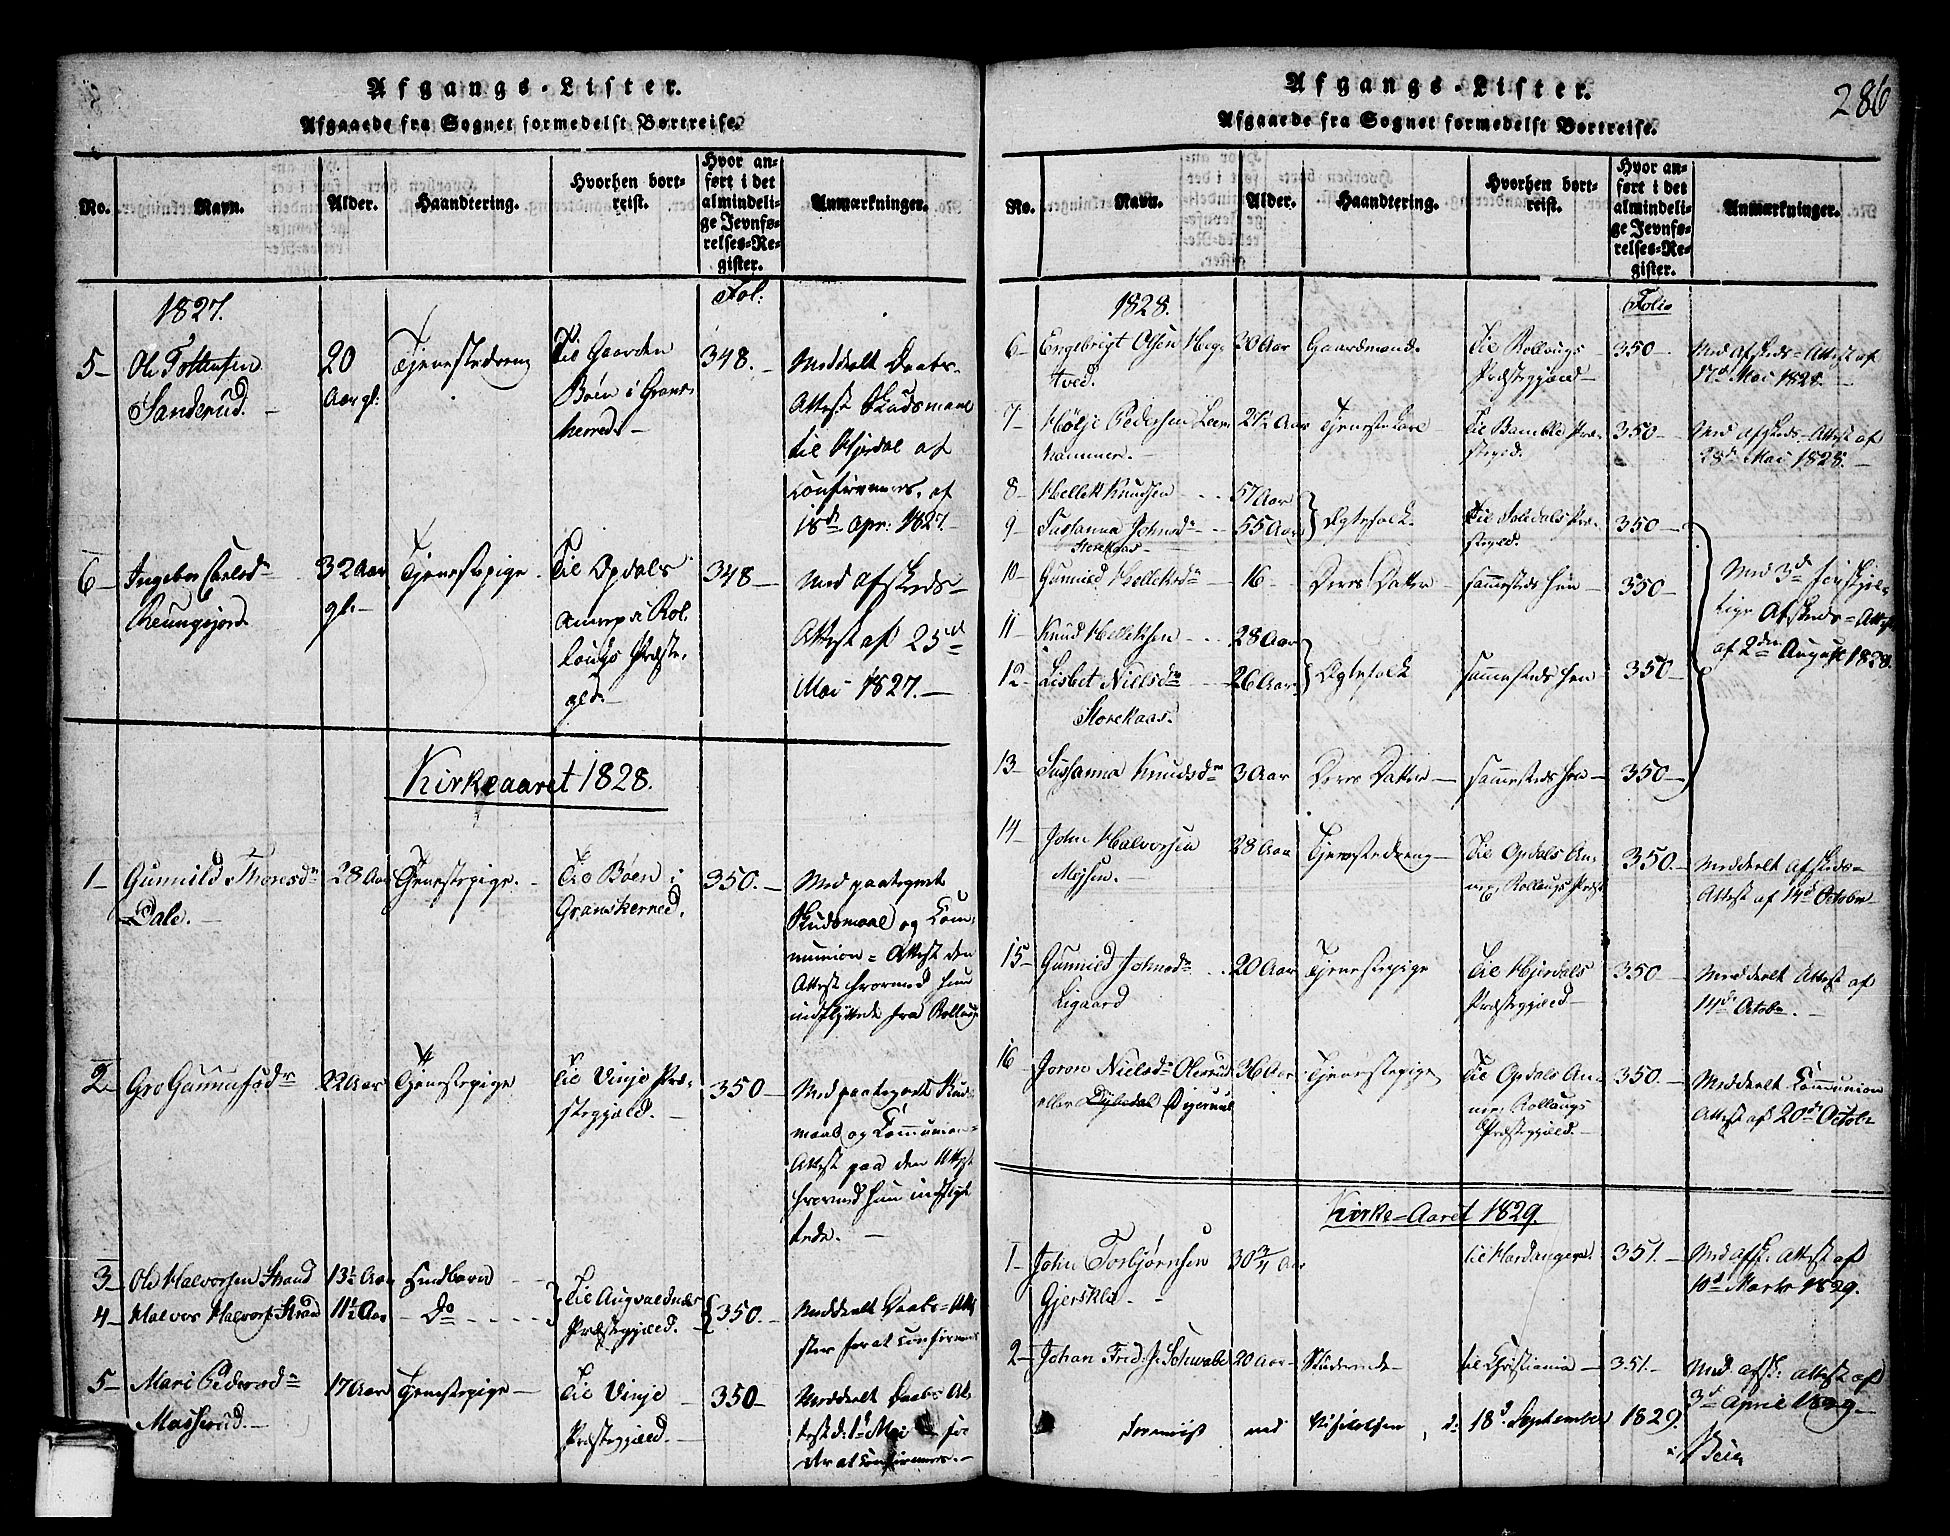 Afgangs-Lister.
Afgaaede fra Sognet formedelst Bortreise.
No.
Navn.
Alder.
Haandtering.
Hvorhen bort-
reist.
Hvor an-
ført i det
almindeli-
ge Jevnfø-
relses-Re-
gister.
Anmærkninger.
1827.
Fol:
5-
Ole Tostensen
Sanderud.
20
Aar gl:
Tjenestedreng
Til Gaarden
Bøen i Grans-
herred
348.
Meddeelt Daabs-
Attest Skudsmaal
til Hjerdal af
18de Apr: 1827
6-
32 Aar
gl.
Tjenestepige
Til Opdals
Annex i Rol-
lougs Præste-
gld.
348
Med Afskeds-
Attest af 25de
Mai 1827.
Kirkeaaret 1828.
1-
Gunnild Thoresdr
Dale.
28 Aar
Tjenestepige.
Til Bøen i
Gransherred.
350.
Med paategnet
Skudsmaal og Com-
munion-Attest den
Attest hvormed hun
indflyttede fra Rollaug
2-
Gro Gunnufsdr
22 Aar
Tjenestepige
Til Vinje Præ-
stegjæld.
350
Med paategnet Skuds-
maal og Communion-
Attest paa den Attest
hvormed hun indflyt-
tede.
3-
Ole Halvorsen Strand
13½ Aar
4-
Halvor Halvors: Strand
11½ Aar
Do
Til Augvaldnæs
Præstegjæld.
350.
Meddeelt Daabs-Atte-
ster for at confirmeres
5-
Mari Pedersdr
Masserud.
17 Aar
Tjenestepige
Til Vinje
Præstegjæld.
350
Meddeelt Daabs At-
test d: 1ste Mai for
der at confirmeres.
Afgangs-Lister.
286
Afgaaede fra Sognet formedelst Bortreise.
No.
Navn.
Alder.
Haandtering.
Hvorhen bort-
reist.
Hvor an-
ført i det
almindeli-
ge Jevnfø-
relses-Re-
gister.
Anmærkninger.
1828.
Folio
6-
Engebrigt Olsen Heg-
tved.
30 Aar
Gaardmand
Til Rollougs
Præstegjæld
350
Med Afskeds-Attest af
17de Mai 1828.
7-
Hølje Pedersen Leer-
hammer.
21½ Aar
Tjenestekarl
Til Bamble Præ-
stegjld.
350
Med Afskeds-Attest af
28de Mai 1828.
8-
Hellek Knudsen
57 Aar
9-
Susanna Johnsdr
Storekaas
55 Aar
Ægtefolk
350
10-
Gunnild Helleksdr
16
Deres Datter
sammesteds hen
350
Med 3de
Afskeds-Attest
af 2den August 1828.
11-
Knud Helleksen
28 Aar
12-
Lisbet Nielsdr
Storekaas.
26 Aar
Ægtefolk
sammesteds hen
350
13-
Susanna Knudsdr
3 Aar
Deres Datter
sammesteds hen
350
14
John Halvorsen
Mejsen.
28 Aar
Tjenestedreng
Til Opdals An-
nex Rollougs Præst
350.
Meddeelt Afskeds-
Attest af 14de October
15-
Gunnild Johnsdr
Ligaard
20 Aar
Tjenestepige
Til Hjerdals
Præstegjæld
350
Meddeelt Attest af
14de Octobr.
16
Joron Nielsdr Olerud
eller
36 Aar
Tjenestepige
Til Opdals An-
nex Rollougs
Præstegjæld.
350.
Meddeelt Communion
Attest af 20de Octobr
Kirke-Aaret 1829.
1-
John Torbjørnsen
Gjerskle.
30 3/4 Aar
til Hardanger
351.
Med Afsk: Attest af
10de Marts 1829.
2-
Johan Fred: J: Schwabe
20 Aar
Studerende
til Christiania
351.
Med Afsk: Attest af
3de April 1829.
Foreviist ved Visitatsen, d: 18de September 1829.